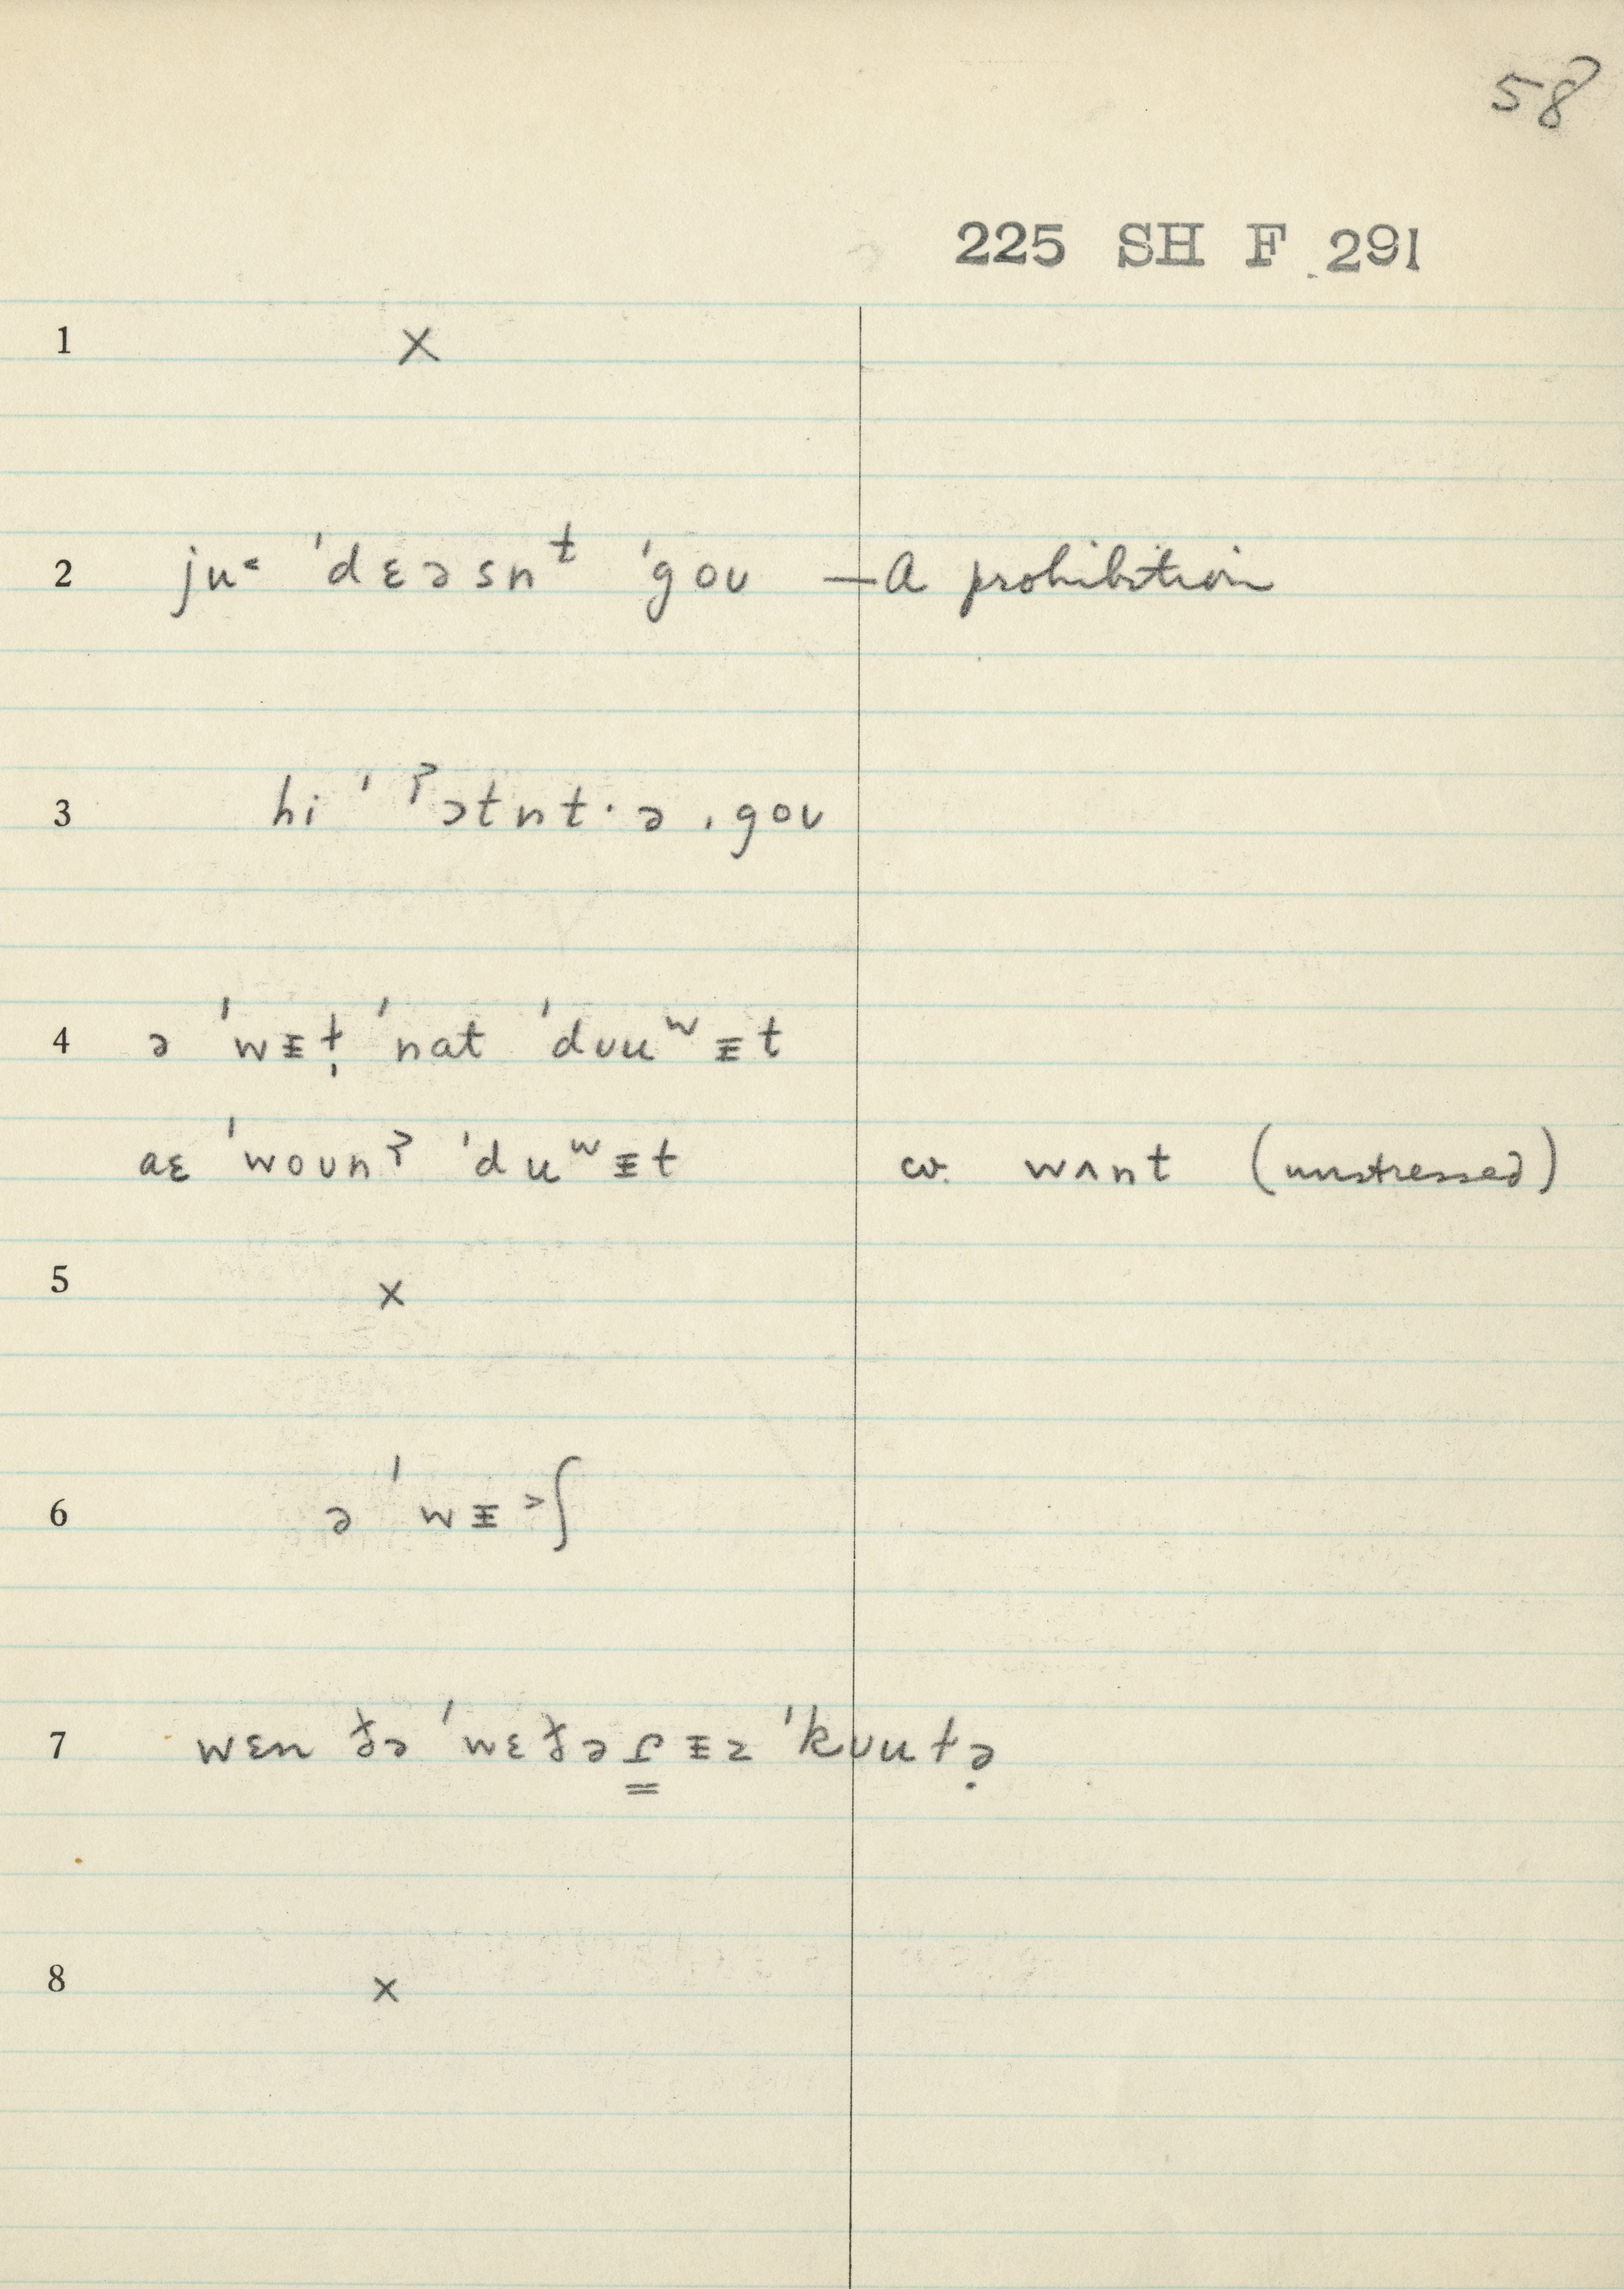 58
225 SH F 291
1 ×
2 ju˂ ˈdɛəsnᵗ ˈgoʊ — A prohibition
3 hi ˈˀɔtnt·ə ˌgoʊ
4 ə ˈwᵻt̩ ˈnat ˈdʊuʷᵻt
aɛ ˈwoʊnˀ ˈduʷᵻt cv. wʌnt (unstressed)
5 ×
6 ə ˈwᵻ˃ʃ
7 wɛn ðə ˈwɛðəɾᵻz ˈkʊutə̣
8 ×